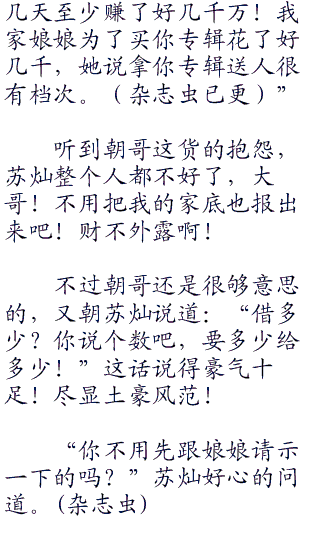 几天至少赚了好几千万！我
家娘娘为了买你专辑花了好
几千，她说拿你专辑送人很
有档次。（杂志虫已更）”
听到朝哥这货的抱怨，
苏灿整个人都不好了，大
哥！不用把我的家底也报出
来吧！财不外露啊！
不过朝哥还是很够意思
的，又朝苏灿说道：“借多
少？你说个数吧，要多少给
多少！”这话说得豪气十
足！尽显土豪风范！
“你不用先跟娘娘请示
一下的吗？”苏灿好心的问
道。(杂志虫)